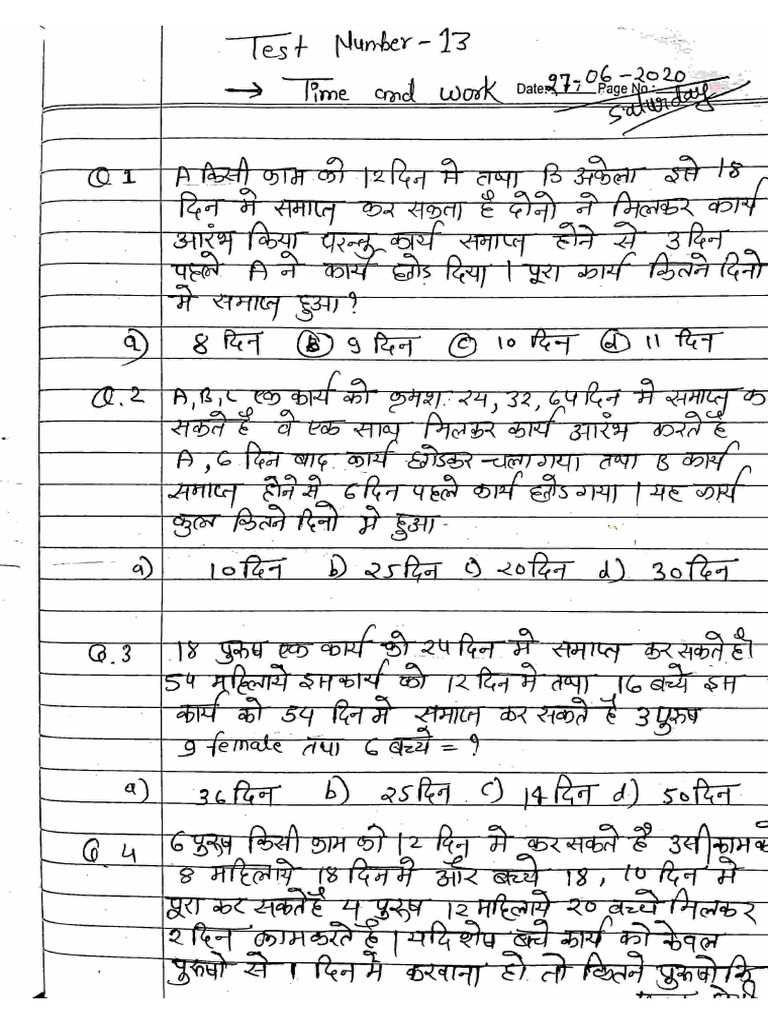 Test Number - 13
→ Time and work Date: 27-06-2020 Page No.:
Saturday
Q 1 A किसी काम को 12 दिन मे तथा B अकेला इसे 18
दिन मे समाप्त कर सकता है दोनो ने मिलकर कार्य
आरंभ किया परन्तु कार्य समाप्त होने से 3 दिन
पहले A ने कार्य छोड दिया । पूरा कार्य कितने दिनो
मे समाप्त हुआ ?
a) 8 दिन (B) 9 दिन (c) 10 दिन (d) 11 दिन
Q.2 A, B, C एक कार्य को क्रमश: 24, 32, 64 दिन मे समाप्त क
सकते है वे एक साथ मिलकर कार्य आरंभ करते है
A, 6 दिन बाद कार्य छोडकर चला गया तथा B कार्य
समाप्त होने से 6 दिन पहले कार्य छोड गया । यह कार्य
कुल कितने दिनो मे हुआ.
a) 10 दिन b) 25 दिन c) 20 दिन d) 30 दिन
Q.3 18 पुरुष एक कार्य को 24 दिन मे समाप्त कर सकते है।
54 महिलाये इस कार्य को 12 दिन मे तथा 16 बच्चे इस
कार्य को 54 दिन मे समाप्त कर सकते है 3 पुरुष
9 female तथा 6 बच्चे = ?
a) 36 दिन b) 25 दिन c) 14 दिन d) 50 दिन
Q.4 6 पुरुष किसी काम को 12 दिन मे कर सकते है उसी काम को
8 महिलाये 18 दिन मे और बच्चे 18, 10 दिन मे
पूरा कर सकते है 4 पुरुष 12 महिलाये 20 बच्चे मिलकर
2 दिन काम करते है । यदि शेष बचे कार्य को केवल
पुरुषो से 1 दिन मे करवाना हो तो कितने पुरुषो कि